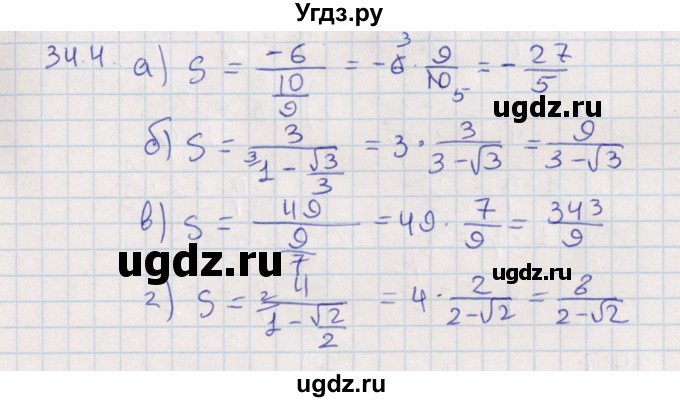 Угдз.ру
34.4. а) S = -6/(10/9) = -6 3 · 9/10 5 = - 27/5
ugdz.ru
б) S = 3/(3 1 - √3/3) = 3 · 3/(3-√3) = 9/(3-√3)
ugdz.ru
в) S = 49/(9/7) = 49 · 7/9 = 343/9
ugdz.ru ugdz.ru
г) S = 4/(2 1 - √2/2) = 4 · 2/(2-√2) = 8/(2-√2)
ugdz.ru
ugdz.ru